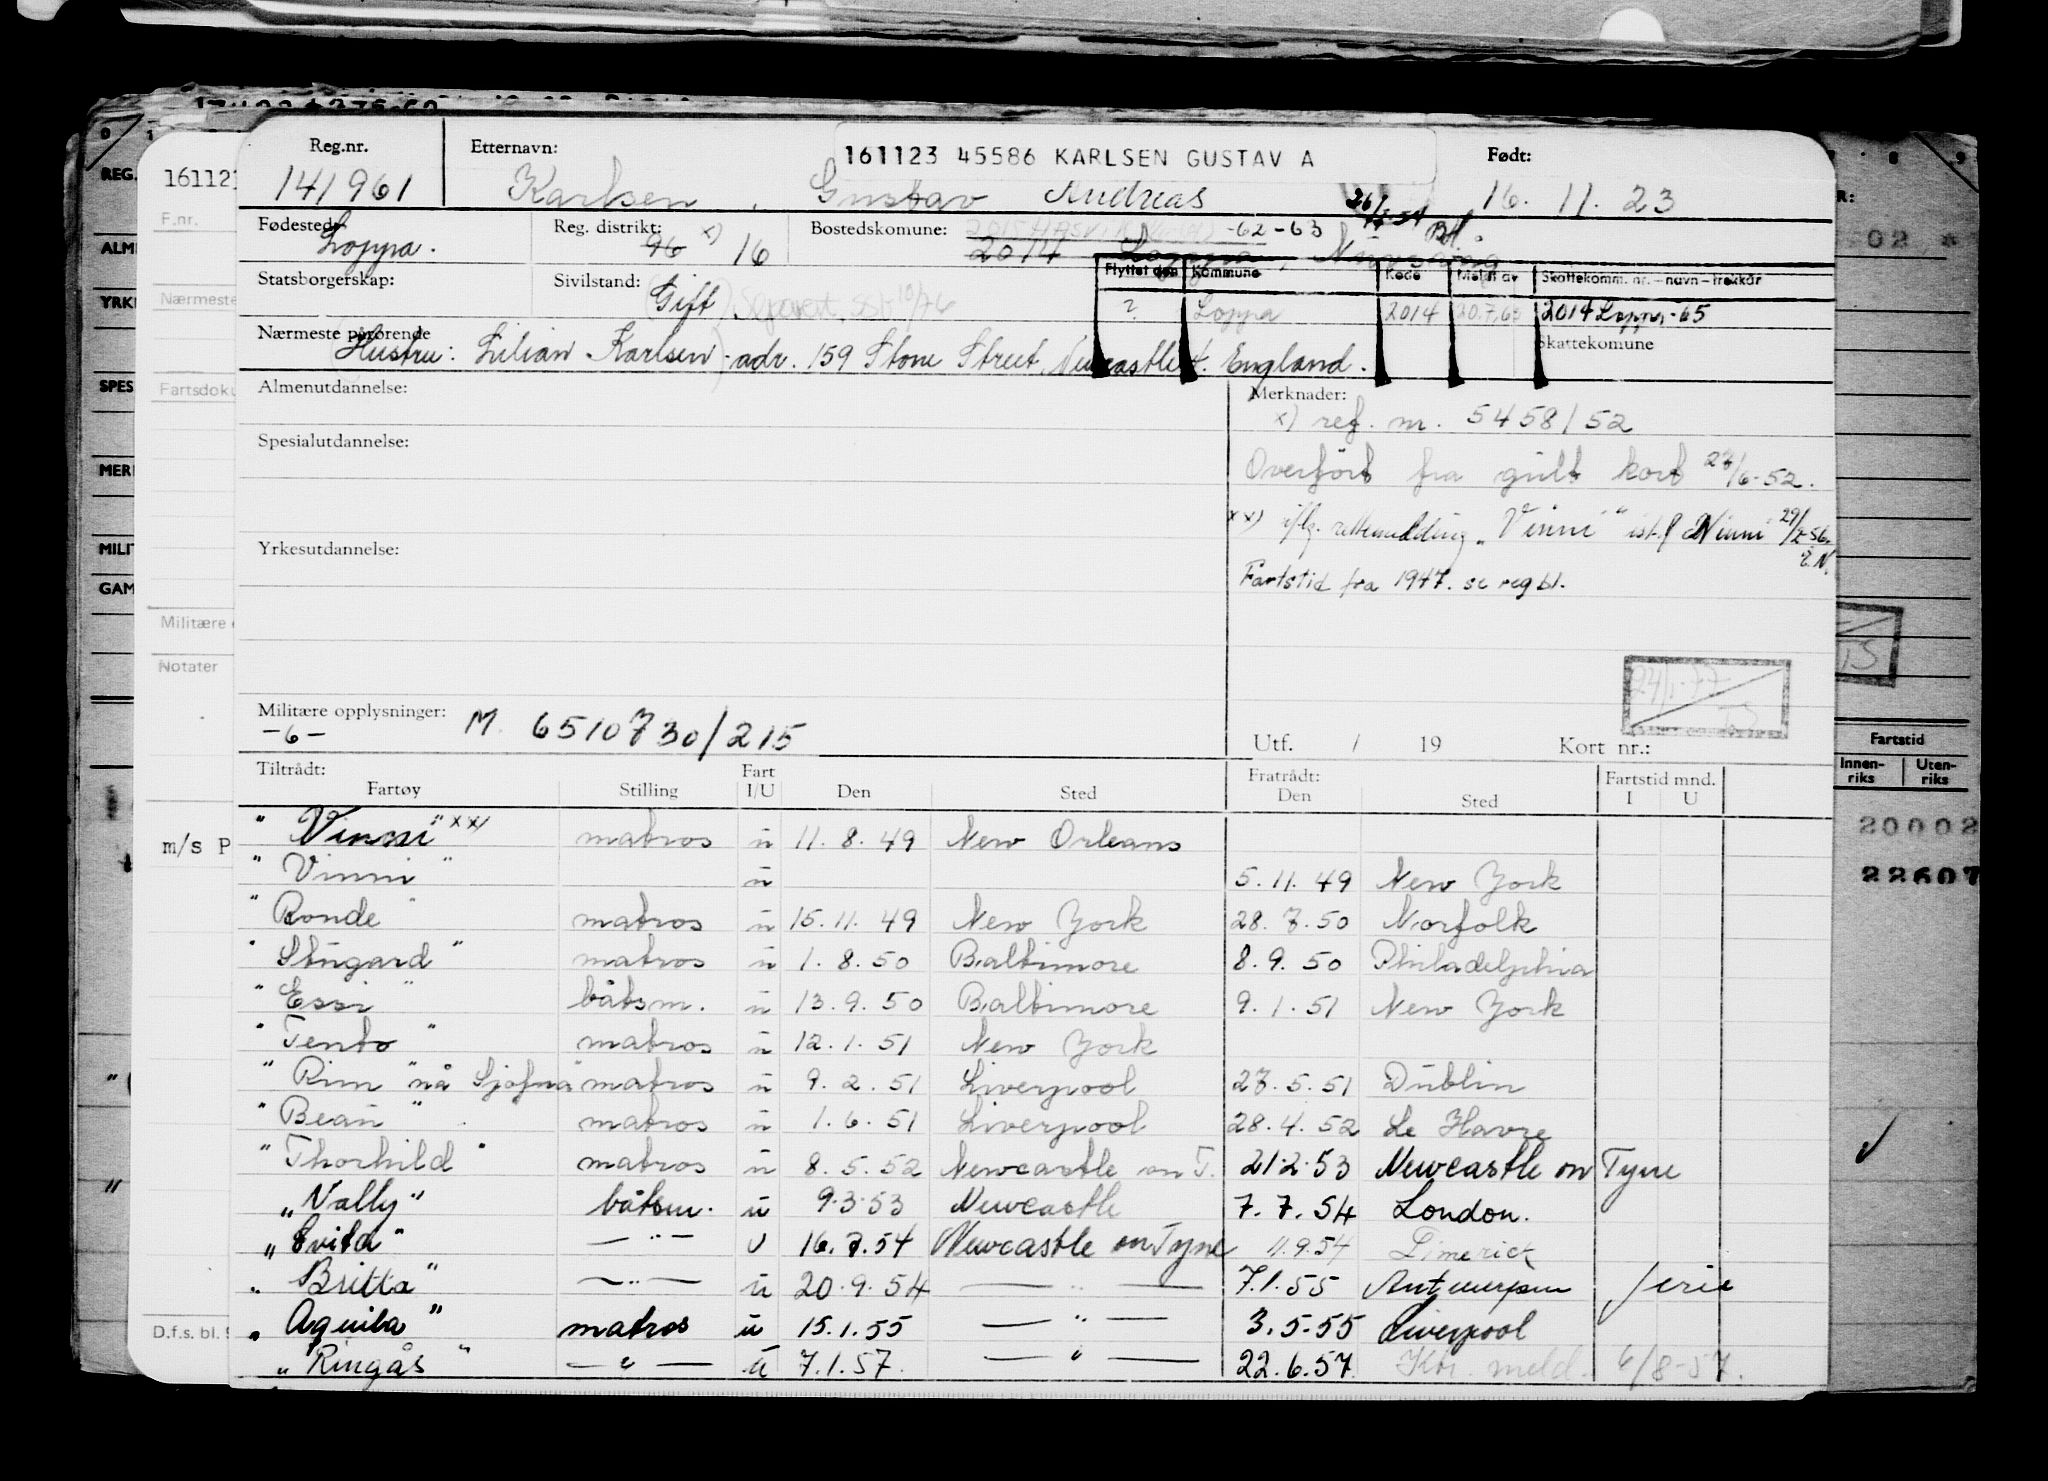 Reg.nr. Etternavn: 161123 45586 KARLSEN GUSTAV A Født:
141961 Karlsen, Gustav Andreas 16. 11. 23
Fødested: Loppa. Reg. distrikt: 96 x) 16 Bostedskommune: -62-63
2014 Loppa
Flyttet den Kommune Kode Meldt av Skattekomm. nr. – navn – trekkår
Statsborgerskap: Sivilstand: Gift
? Loppa 2014 20.7.65 2014 Loppa-65
Skattekomune
Nærmeste pårørende
Hustru: Lilian Karlsen - adr. 159 Stone Street, Newcastle t. England.
Almenutdannelse: Merknader:
x) ref. nr. 5458/52
Spesialutdannelse:
Overført fra gult kort 27/6-52.
xx) iflg. rettemelding "Vinni" ist.f. Ninni 29/2-56. E.N.
Yrkesutdannelse:
Fartstid fra 1947. se reg bl.
24/1-77
Militære opplysninger: M 6510730/215
-6-
Utf. / 19 Kort nr.:
Tiltrådt: Fart Fratrådt: Fartstid mnd.
Fartøy Stilling I/U Den Sted Den Sted I U
" Vinni" xx) matros u 11. 8. 49 New Orleans
" Vinni " u 5. 11. 49 New York
" Ronde " matros u 15. 11. 49 New York 28. 7. 50 Norfolk
" Stugard " matros u 1. 8. 50 Baltimore 8. 9. 50 Philadelphia
" Essi " båtsm. u 13. 9. 50 Baltimore 9. 1. 51 New York
" Tento " matros u 12. 1. 51 New York
" Rim " nå Sjofna" matros u 9. 2. 51 Liverpool 27. 5. 51 Dublin
" Beau " matros u 1. 6. 51 Liverpool 28. 4. 52 Le Havre
" Thorhild " matros u 8. 5. 52 Newcastle on T. 21.2.53 Newcastle on Tyne
" Vally" båtsm. u 9.3.53 Newcastle 7. 7. 54 London.
" Evita" — " — U 16. 7. 54 Newcastle on Tyne 11.9.54 Limerick
" Britta" — " — u 20.9.54 — " — 7.1.55 Antwerpen ferie
" Aquila" matros u 15.1.55 — " — 3.5.55 Liverpool
" Ringås " — " — u 7.1.57. — " — 22.6.57 Ktr. meld. 6/8-57.
161123
F.nr.
Nærmeste
Fartsdoku
Militære
Notater
m/s P
D.f.s. bl.
REG.
ALM
YRK
SPES
MER
MILIT
GAM
Fartstid
Innen-riks Uten-riks
20002
22607